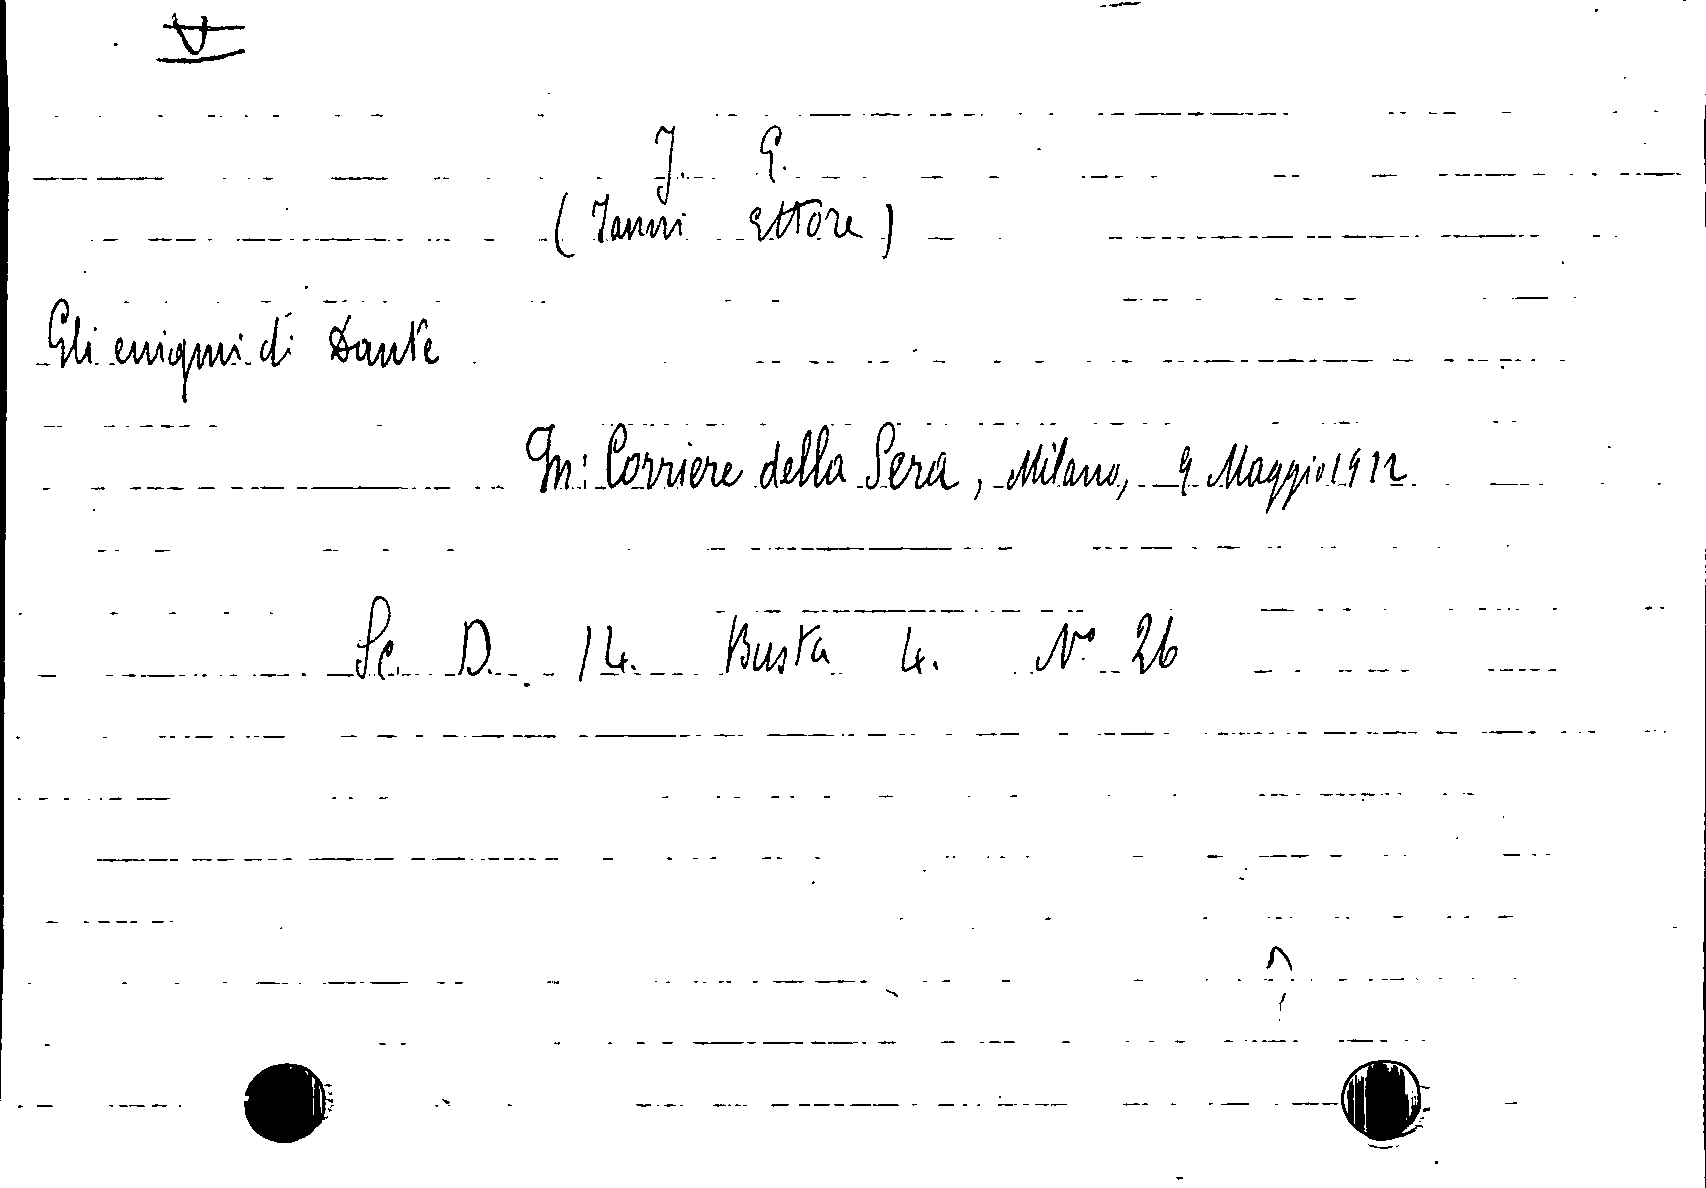 V
J. E.
(Janni Ettore)
Gli enigmi di Dante
In: Corriere della Sera, Milano, 9 Maggio 1912
Sc. D. 14. Busta 4. N° 26